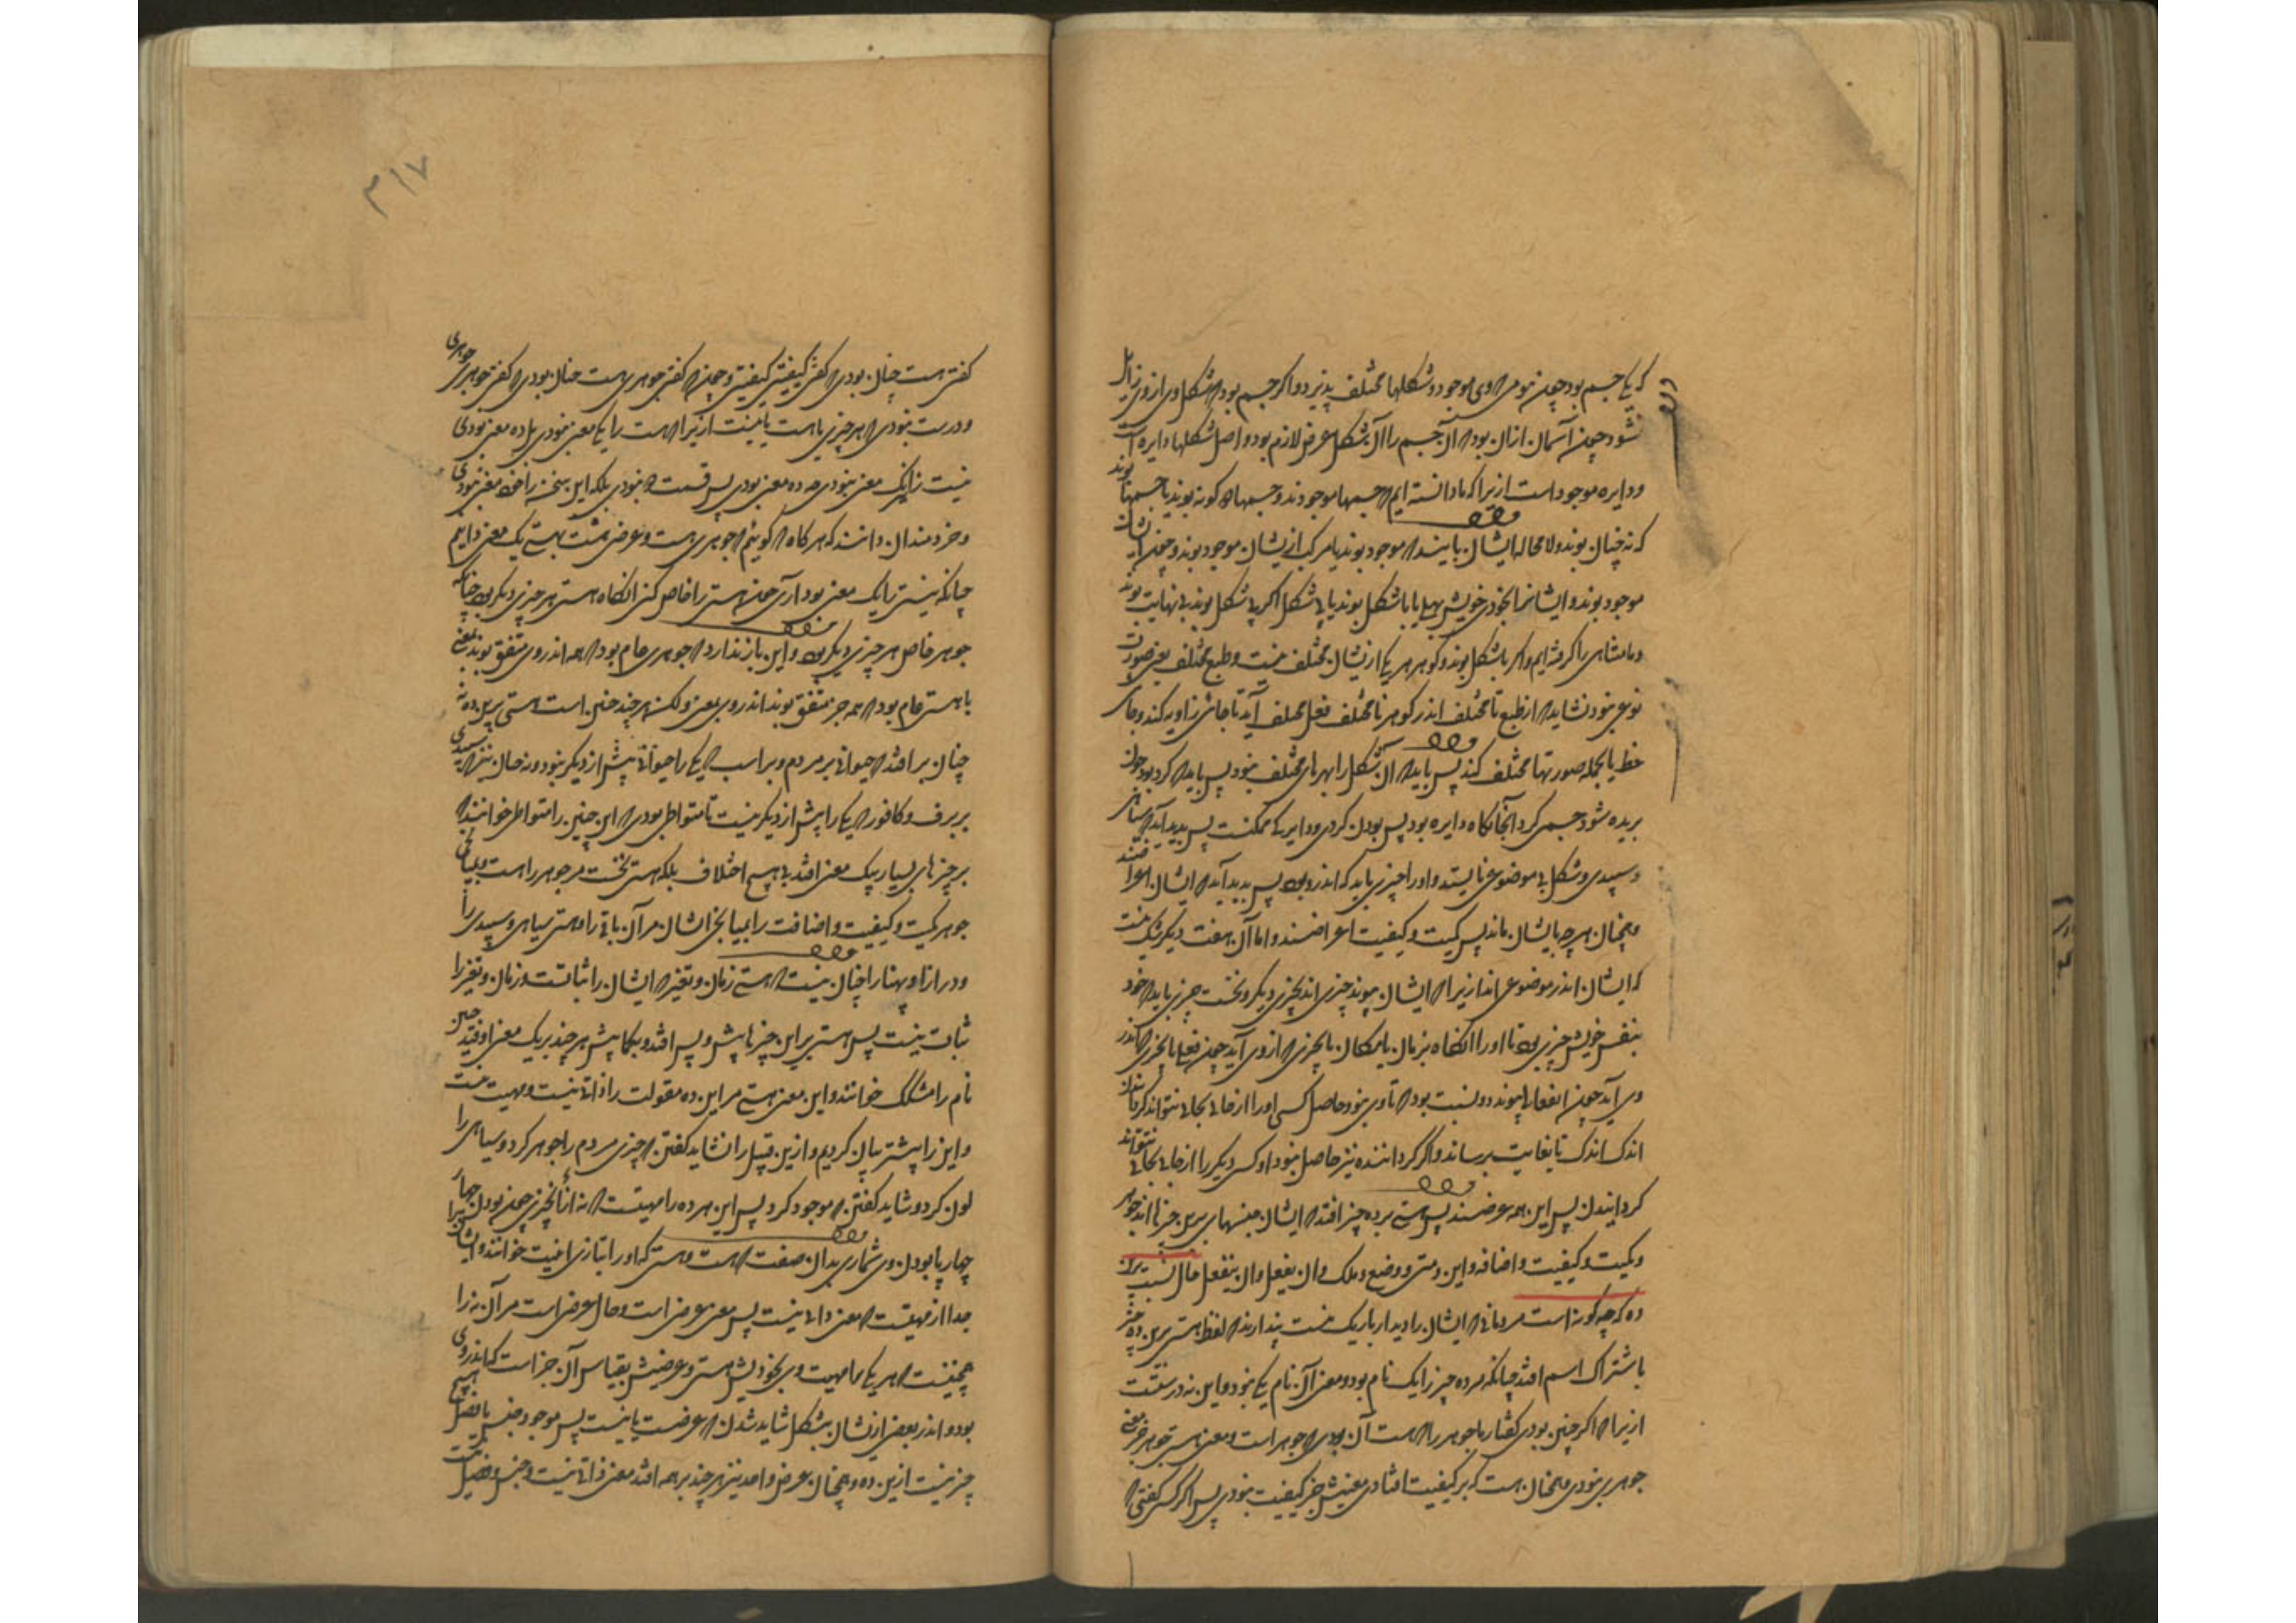 که یکی جسم بود چون موم که وی موجود و شکلها مختلف پذیرد و اگر جسم بود که شکل وی از وی زایل
نشود چون آسمان از آن بود که آن جسم را آن شکل عرض لازم بود و اصل شکلها دایره است
و دایره موجود است ازیرا که ما دانسته ایم که جسمها موجودند و جسمها دو گونه بوند یا جسمها بوند
که نه چنان بوند و لا محاله ایشان بایند که موجود بوند یا مرکب ازیشان موجود بوند و چون ایشان
موجود بوند و ایشانرا بخودی خویش بهلی یا با شکل بوند یا بی شکل اگر بی شکل بوند بی نهایت بوند
و ما متناهی را گرفته ایم و اگر با شکل بوند و گوهر هر یکی ازیشان مختلف نیست و طبع مختلف یعنی صورت
نوعی نبود نشاید که از طبع نا مختلف اندر گوهر نا مختلف فعل مختلف آید تا جائی زاویه کند و جای
خط یا بجمله صورتها مختلف کند پس باید که آن شکل را بهرهای مختلف نبود پس باید که گرد بود چون
بریده شود جسمی گرد آنجایگاه دایره بود پس بودن گردی و دایرگی ممکنست پس پدید آید که سیاهی
و سپیدی و شکل بی موضوعی نایستد و او را چیزی باید که اندر وی بود پس پدید آید که ایشان
و همچنان هر چه بایشان ماند پس کمیت و کیفیت اعراضند و اما آن هفت دیگر شک نیست
که ایشان اندر موضوعی اند ازیرا که ایشان پیوند چیزی اند بچیزی دیگر و نخست چیزی باید که خود
بنفس خویش چیزی بود تا او را آنگاه بزمان یا بمکان یا بچیزی که از وی آید چون فعل یا بچیزی که اندر
وی آید چون انفعال پیوند و نسبت بود که تا وی نبود حاصل کسی او را از حالی بحالی نتواند گردانیدن
اندک اندک تا بغایت برساند و اگر گرداننده نیز حاصل نبود او کسی دیگر را از حالی بحالی نتواند
گردانیدن پس این همه عرضند پس هستی بر ده چیز افتد که ایشان جنسهای برین چیزها اند جوهر
و کمیت و کیفیت و اضافه و این و متی و وضع و ملک و ان یفعل و ان ینفعل حال نسبت
ده که چه گونه است مردمانی که ایشان را دیدار باریک نیست پندارند که لفظ هستی برین ده چیز
باشتراک اسم افتد چنانکه هر ده چیز را یک نام بود و معنی آن نام یکی نبود و این نه درستست
ازیرا که اگر چنین بودی گفتار ما جوهر را که هست آن بودی که جوهر است و معنی هستی جوهر جز معنی
جوهری نبودی و همچنان هست که بر کیفیت افتادی معنیش جز کیفیت نبودی پس اگر کسی گفتی که
گفتی هست چنان بودی که گفتی کیفیتی کیفیتی و چون گفتی جوهری هست چنان بودی که گفتی جوهری جوهری
و درست نبودی که هر چیزی یا هست یا نیست ازیرا که هست را یکی معنی نبودی بل ده معنی بودی
نیست را نیز یک معنی نبودی که ده معنی بودی پس قسمت دو نبودی بلکه این سخن را خود معنی نبودی
و خردمندان دانند که هر گاه که گوئیم جوهری هست و عرضی هست بهستی یک معنی دانیم
چنانکه نیستی را یک معنی بود آری چون هستی را خاص کنی آنگاه هستی هر چیزی دیگر بود چنانکه
جوهر خاص هر چیزی دیگر بود و این باز ندارد که جوهری عام بود که همه اندر وی متفق بوند بمعنی
یا هستی عام بود که همه چیز متفق بوند اندر وی بمعنی ولکن هر چند چنین است هستی برین ده نه
چنان بر افتد که حیوانی بر مردم و بر اسب که یکی را حیوانی پیش از دیگر نبود و نه چنان نیز که سپیدی
بر برف و کافور که یکی را پیش از دیگر نیست تا متواطی بودی که این چنین را متواطی خوانند که
بر چیزهای بسیار بیک معنی افتد بی هیچ اختلاف بلکه هستی نخست مر جوهر را هست و بمیانجی
جوهر کمیت و کیفیت و اضافت را بمیانجی ایشان مر آن باقی را و هستی سیاهی و سپیدی را
و درازا و پهنا را چنان نیست که هستی زمان و تغیر که ایشان را ثباتست و زمان و تغیر را
ثبات نیست پس هستی بر این چیزها پیش و پس افتد و بکما بیش هر چند بر یک معنی اوفتد چنین
نام را مشکک خوانند و این معنی هستی مر این ده مقولت را ذاتی نیست و مهیت نیست
و این را پیشتر بیان کردیم و ازین قبیل را نشاید گفتن که چیزی مردم را جوهر کرد و سیاهی را
لون کرد و شاید گفتن که موجود کرد پس این هر ده را مهیتست که نه از چیزی چون بودن چهار
چهار یا بودن وی شماری بدان صفت که هست و هستی که او را بتازی انیت خوانند و ایشان را
جدا از مهیتست که معنی ذاتی نیست پس معنی عرضی است و حال عرض است مر آن نه را
همچنینست که هر یکی را مهیت وی بخودیش هستی و عرضیش بقیاس آن چیز است که اندر وی
بود و اندر بعضی ازیشان بشک شاید شدن که عرضست یا نیست پس موجود جنس یا فصل هیچ
چیز نیست ازین ده و همچنان عرض و واحد نیز هر چند بر همه افتد معنی ذاتی نیست و جنس و فصل نیست
۳۱۷